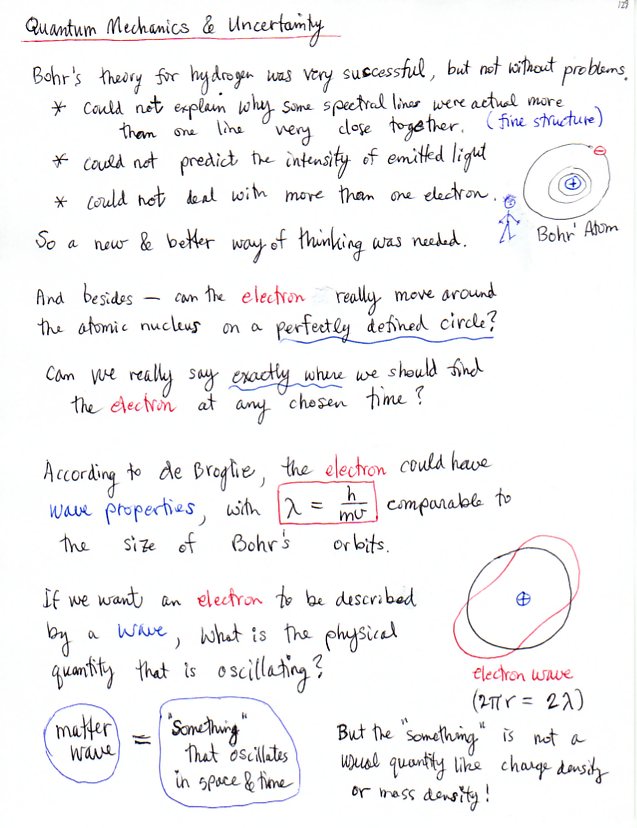 129
Quantum Mechanics & Uncertainity
Bohr's theory for hydrogen was very successful, but not without problems.
* could not explain why some spectral lines were actual more
than one line very close together. (fine structure)
* could not predict the intensity of emitted light
* could not deal with more than one electron.
Bohr' Atom
So a new & better way of thinking was needed.
And besides — can the electron really move around
the atomic nucleus on a perfectly defined circle?
Can we really say exactly where we should find
the electron at any chosen time?
According to de Broglie, the electron could have
wave properties, with λ = h/mv comparable to
the size of Bohr's orbits.
If we want an electron to be described
by a wave, what is the physical
quantity that is oscillating?
electron wave
(2πr = 2λ)
matter
wave
=
"Something"
that oscillates
in space & time
But the "something" is not a
usual quantity like charge density
or mass density!